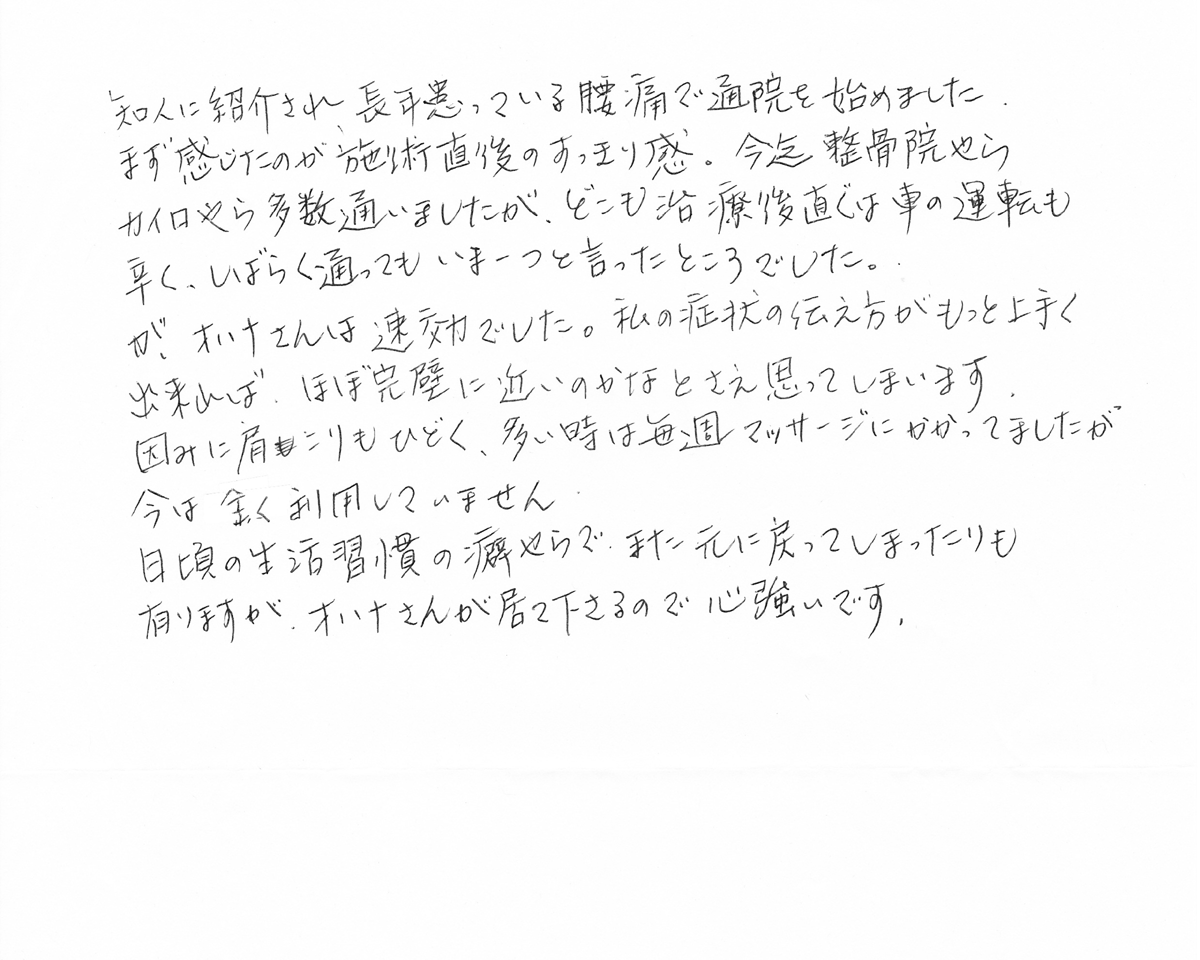 知人に紹介され、長年患っている腰痛で通院を始めました.
まず感じたのが施術直後のすっきり感。今迄整骨院やら
カイロやら多数通いましたが、どこも治療後直ぐは車の運転も
辛く、しばらく通ってもいま一つと言ったところでした。
が、オハナさんは速効でした。私の症状の伝え方がもっと上手く
出来れば、ほぼ完璧に近いのかなとさえ思ってしまいます.
因みに肩こりもひどく、多い時は毎週マッサージにかかってましたが
今は全く利用していません.
日頃の生活習慣の癖やらで、また元に戻ってしまったりも
有りますが、オハナさんが居て下さるので心強いです.